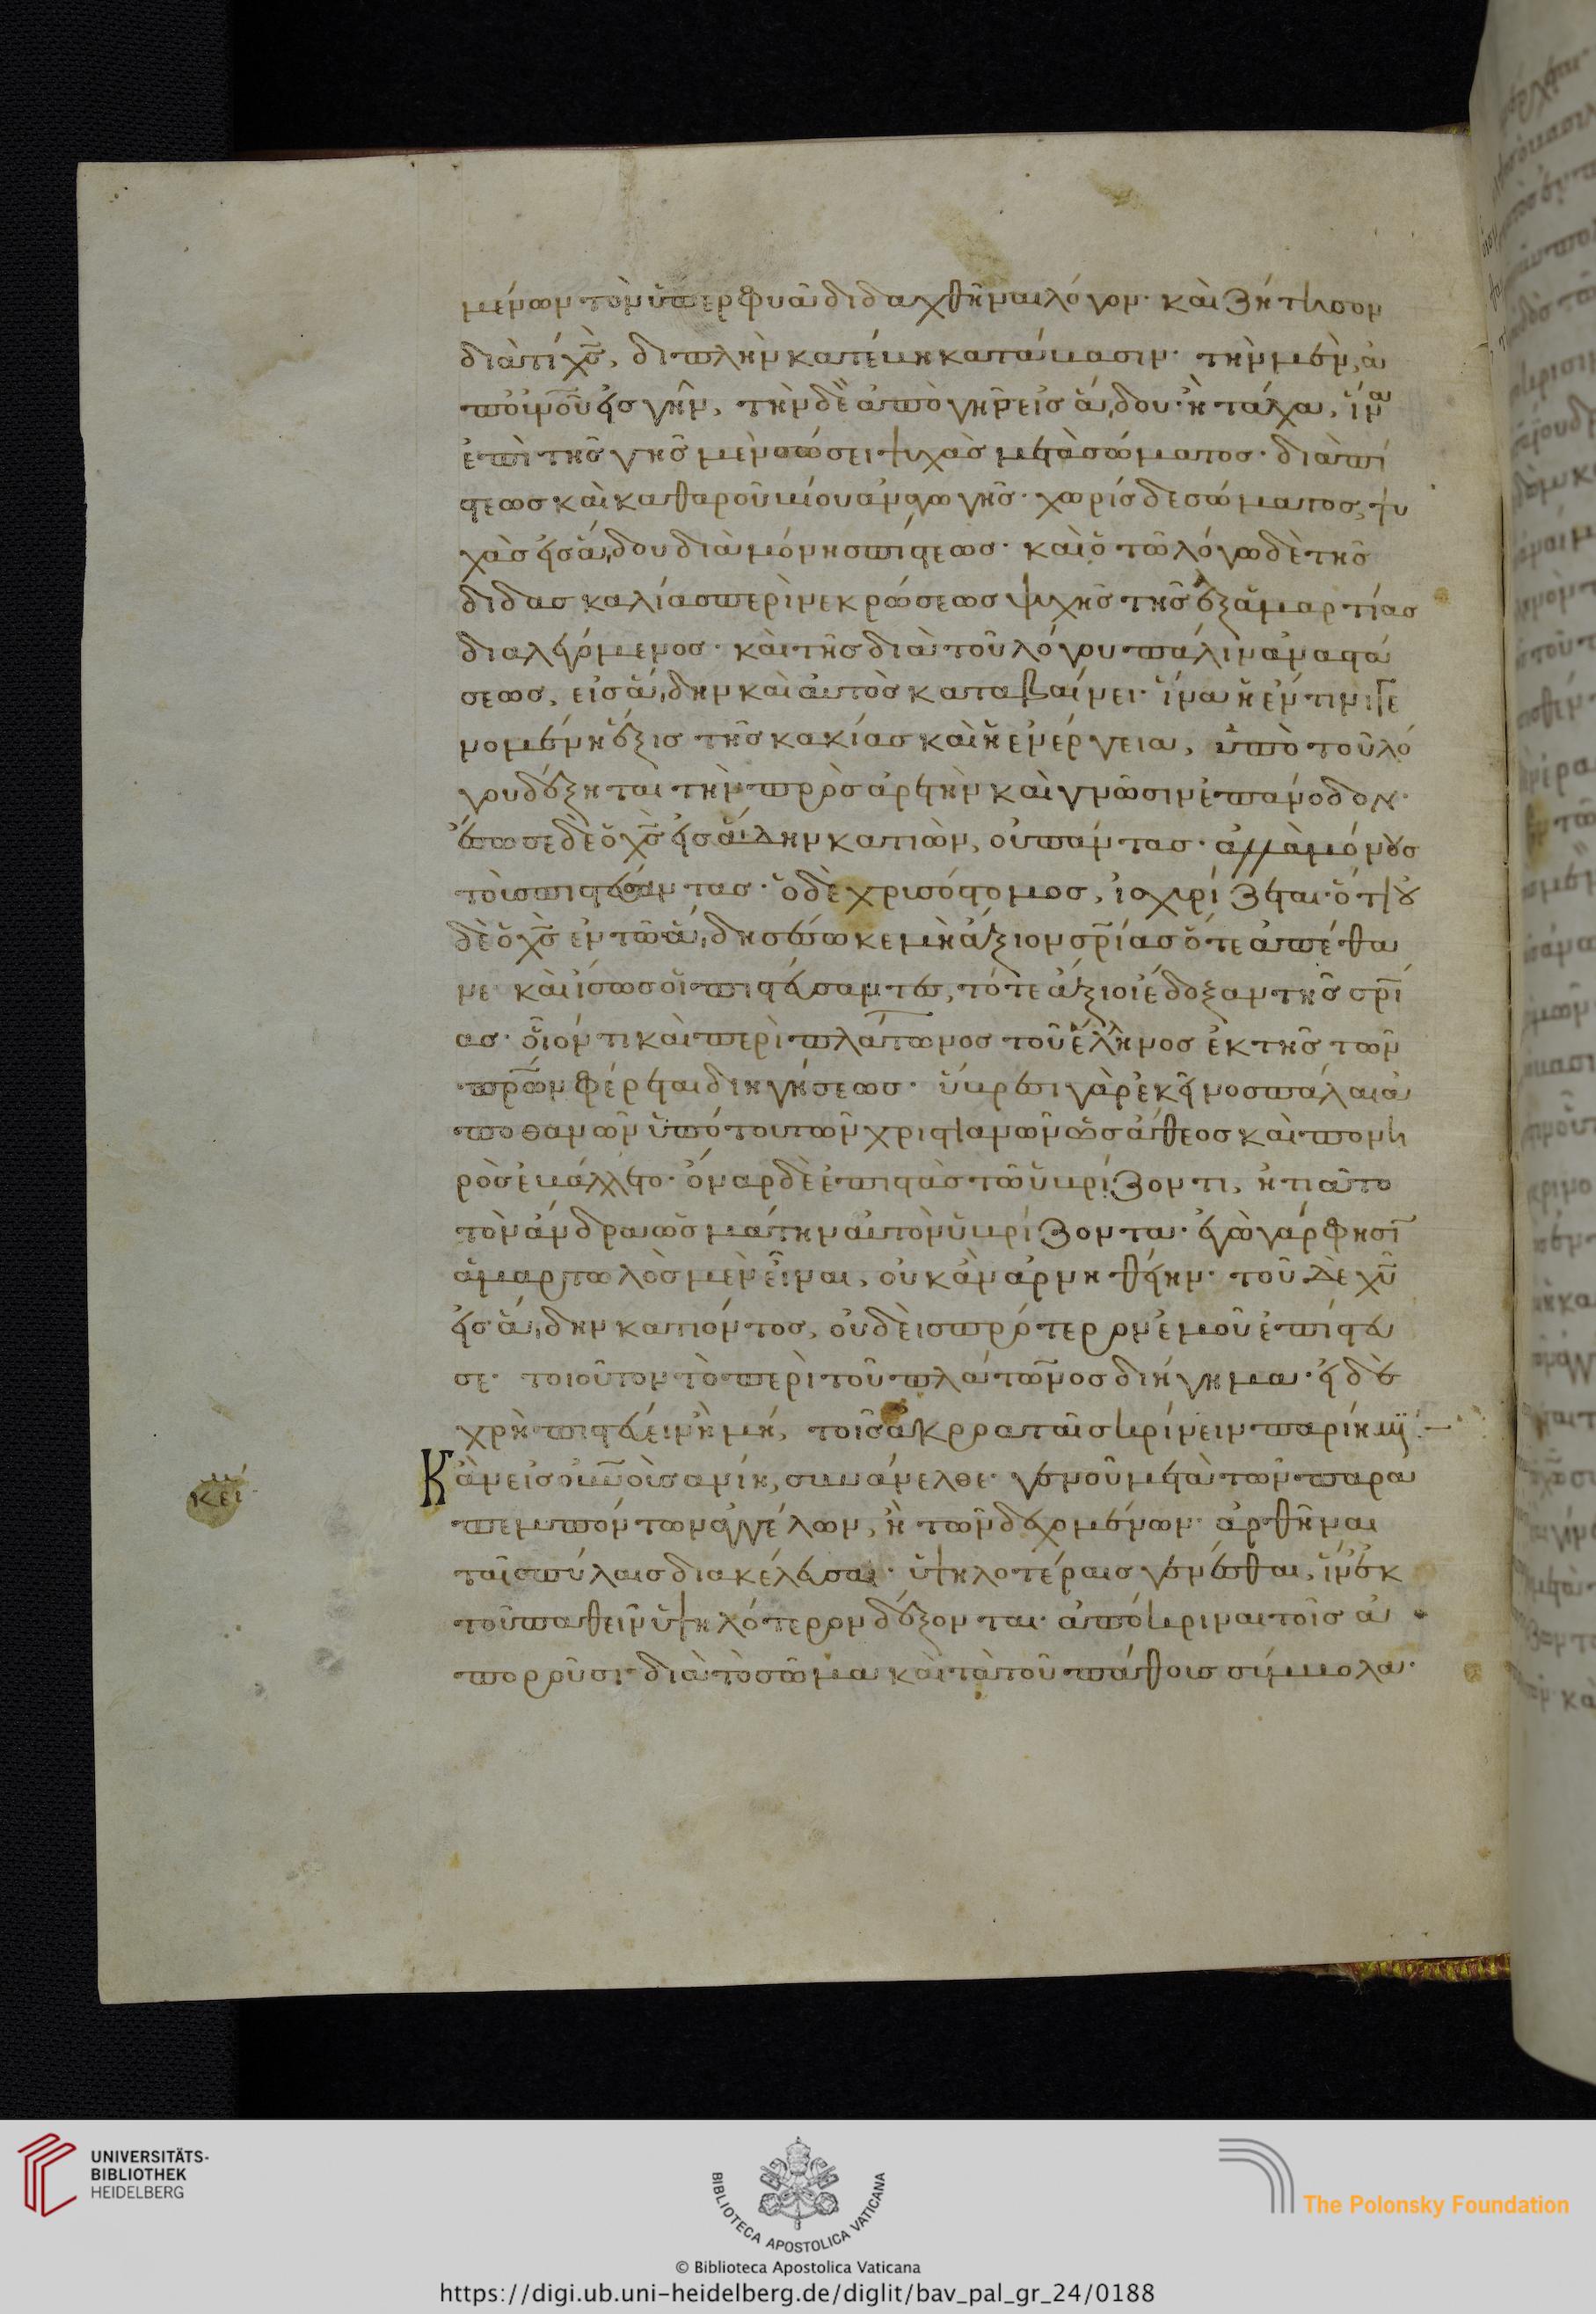 μένων τὸν ὑπερφυᾶ διδαχθῆναι λόγον· καὶ ζήτησον
διατί χς, διπλὴν κατέβη κατάβασιν· τὴν μὲν, ἀ
π' οὐνοῦ εἰς γῆν, τὴν δὲ ἀπὸ γῆς εἰς ἅδου· ἢ τάχα, ἵνα
ἐπὶ τῆς γῆς μὲν σώσει ψυχὰς μετὰ σώματος· διὰ πί
στεως καὶ καθαροῦ βίου ἀναγωγῆς· χωρὶς δὲ σώματος, ψυ
χὰς εἰς ἅδου διὰ μόνης πίστεως· καὶ ὁ τῶ λόγω δὲ τῆς
διδασκαλίας περὶ νεκρώσεως ψυχῆς τῆς ἐξ ἁμαρτίας
διαλεγόμενος· καὶ τῆς διὰ τοῦ λόγου πάλιν ἀναστά
σεως, εἰς ἅδην καὶ αὐτὸς καταβαίνει· ἵνα ἡ ἔν τινι γε
νομένη ἕξις τῆς κακίας καὶ ἡ ἐνέργεια, ὑπὸ τοῦ λό
γου δέξηται τὴν πρὸς ἀρετὴν καὶ γνῶσιν ἐπάνοδον·
ἔσωσε δὲ ὁ χς εἰς ἅδην κατιὼν, οὐ πάντας· ἀλλὰ μόνους
τοὺς πιστεύσαντας· ὁ δὲ χρυσόστομος, ἰσχυρίζεται· ὅτι οὐ
δὲ ὁ χς ἐν τῶ ἅδη σέσωκε μὴ ἄξιον σρίας ὅτε ἀπέθα
νε καὶ ἴσως οἱ πιστεύσαντες, τότε ἄξιοι ἔδοξαν τῆς σρί
ας· οἷόν τι καὶ περὶ πλάτωνος τοῦ ἕλληνος ἐκ τῆς τῶν
πρων φέρεται διηγήσεως· ὕβρισι γὰρ ἐκεῖνος πάλαι ἀ
ποθανὼν ὑπό του τῶν χριστιανῶν ὡς ἄθεος καὶ πονη
ρὸς ἐβάλλετο· ὄναρ δὲ ἐπιστὰς τῶ ὑβρίζοντι, ἠτιᾶτο
τὸν ἄνδρα ὡς μάτην αὐτὸν ὑβρίζοντα· ἐγὼ γάρ φησὶ
ἁμαρτωλὸς μὲν εἶναι, οὐκ ἂν ἀρνηθείην· τοῦ δὲ χυ
εἰς ἅδην κατιόντος, οὐδεὶς πρότερον ἐμοῦ ἐπίστευ
σε· τοιοῦτον τὸ περὶ τοῦ πλάτωνος διήγημα· εἰ δὲ
χρὴ πιστεύειν ἢ μή, τοῖς ἀκροαταῖς κρίνειν παρίημι:—
Κἂν εἰς οὐνοὺς ἀνίη, συνάνελθε· γενοῦ μετὰ τῶν παρα
πεμπόντων ἀγγέλων, ἢ τῶν δεχομένων· ἀρθῆναι
ταῖς πύλαις διακέλευσαι· ὑψηλοτέραις γενέσθαι, ἵν' ἐκ
τοῦ παθεῖν ὑψηλότερον δέξονται· ἀπόκριναι τοῖς ἀ
ποροῦσι διὰ τὸ σῶμα καὶ τὰ τοῦ πάθους σύμβολα·
κεί
UNIVERSITÄTS-
BIBLIOTHEK
HEIDELBERG
BIBLIOTECA APOSTOLICA VATICANA
© Biblioteca Apostolica Vaticana
The Polonsky Foundation
https://digi.ub.uni-heidelberg.de/diglit/bav_pal_gr_24/0188